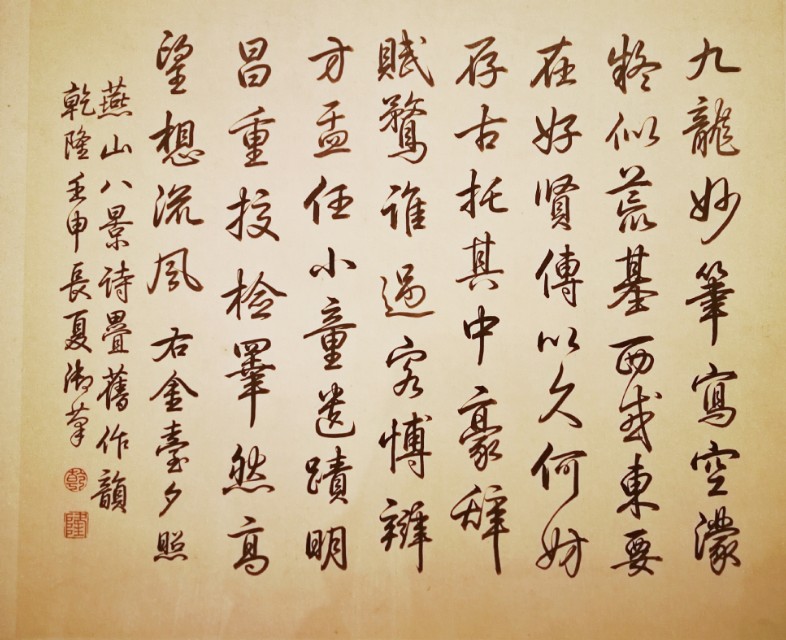 九龍妙筆寫空濛
疑似荒基西或東要
在好賢傳以久何妨
存古托其中豪辭
賦鶩誰過客博辯
方盂任小童遺蹟明
昌重挍檢睪然高
望想流風右金臺夕照
燕山八景詩疊舊作韻
乾隆壬申長夏御筆
乾
隆